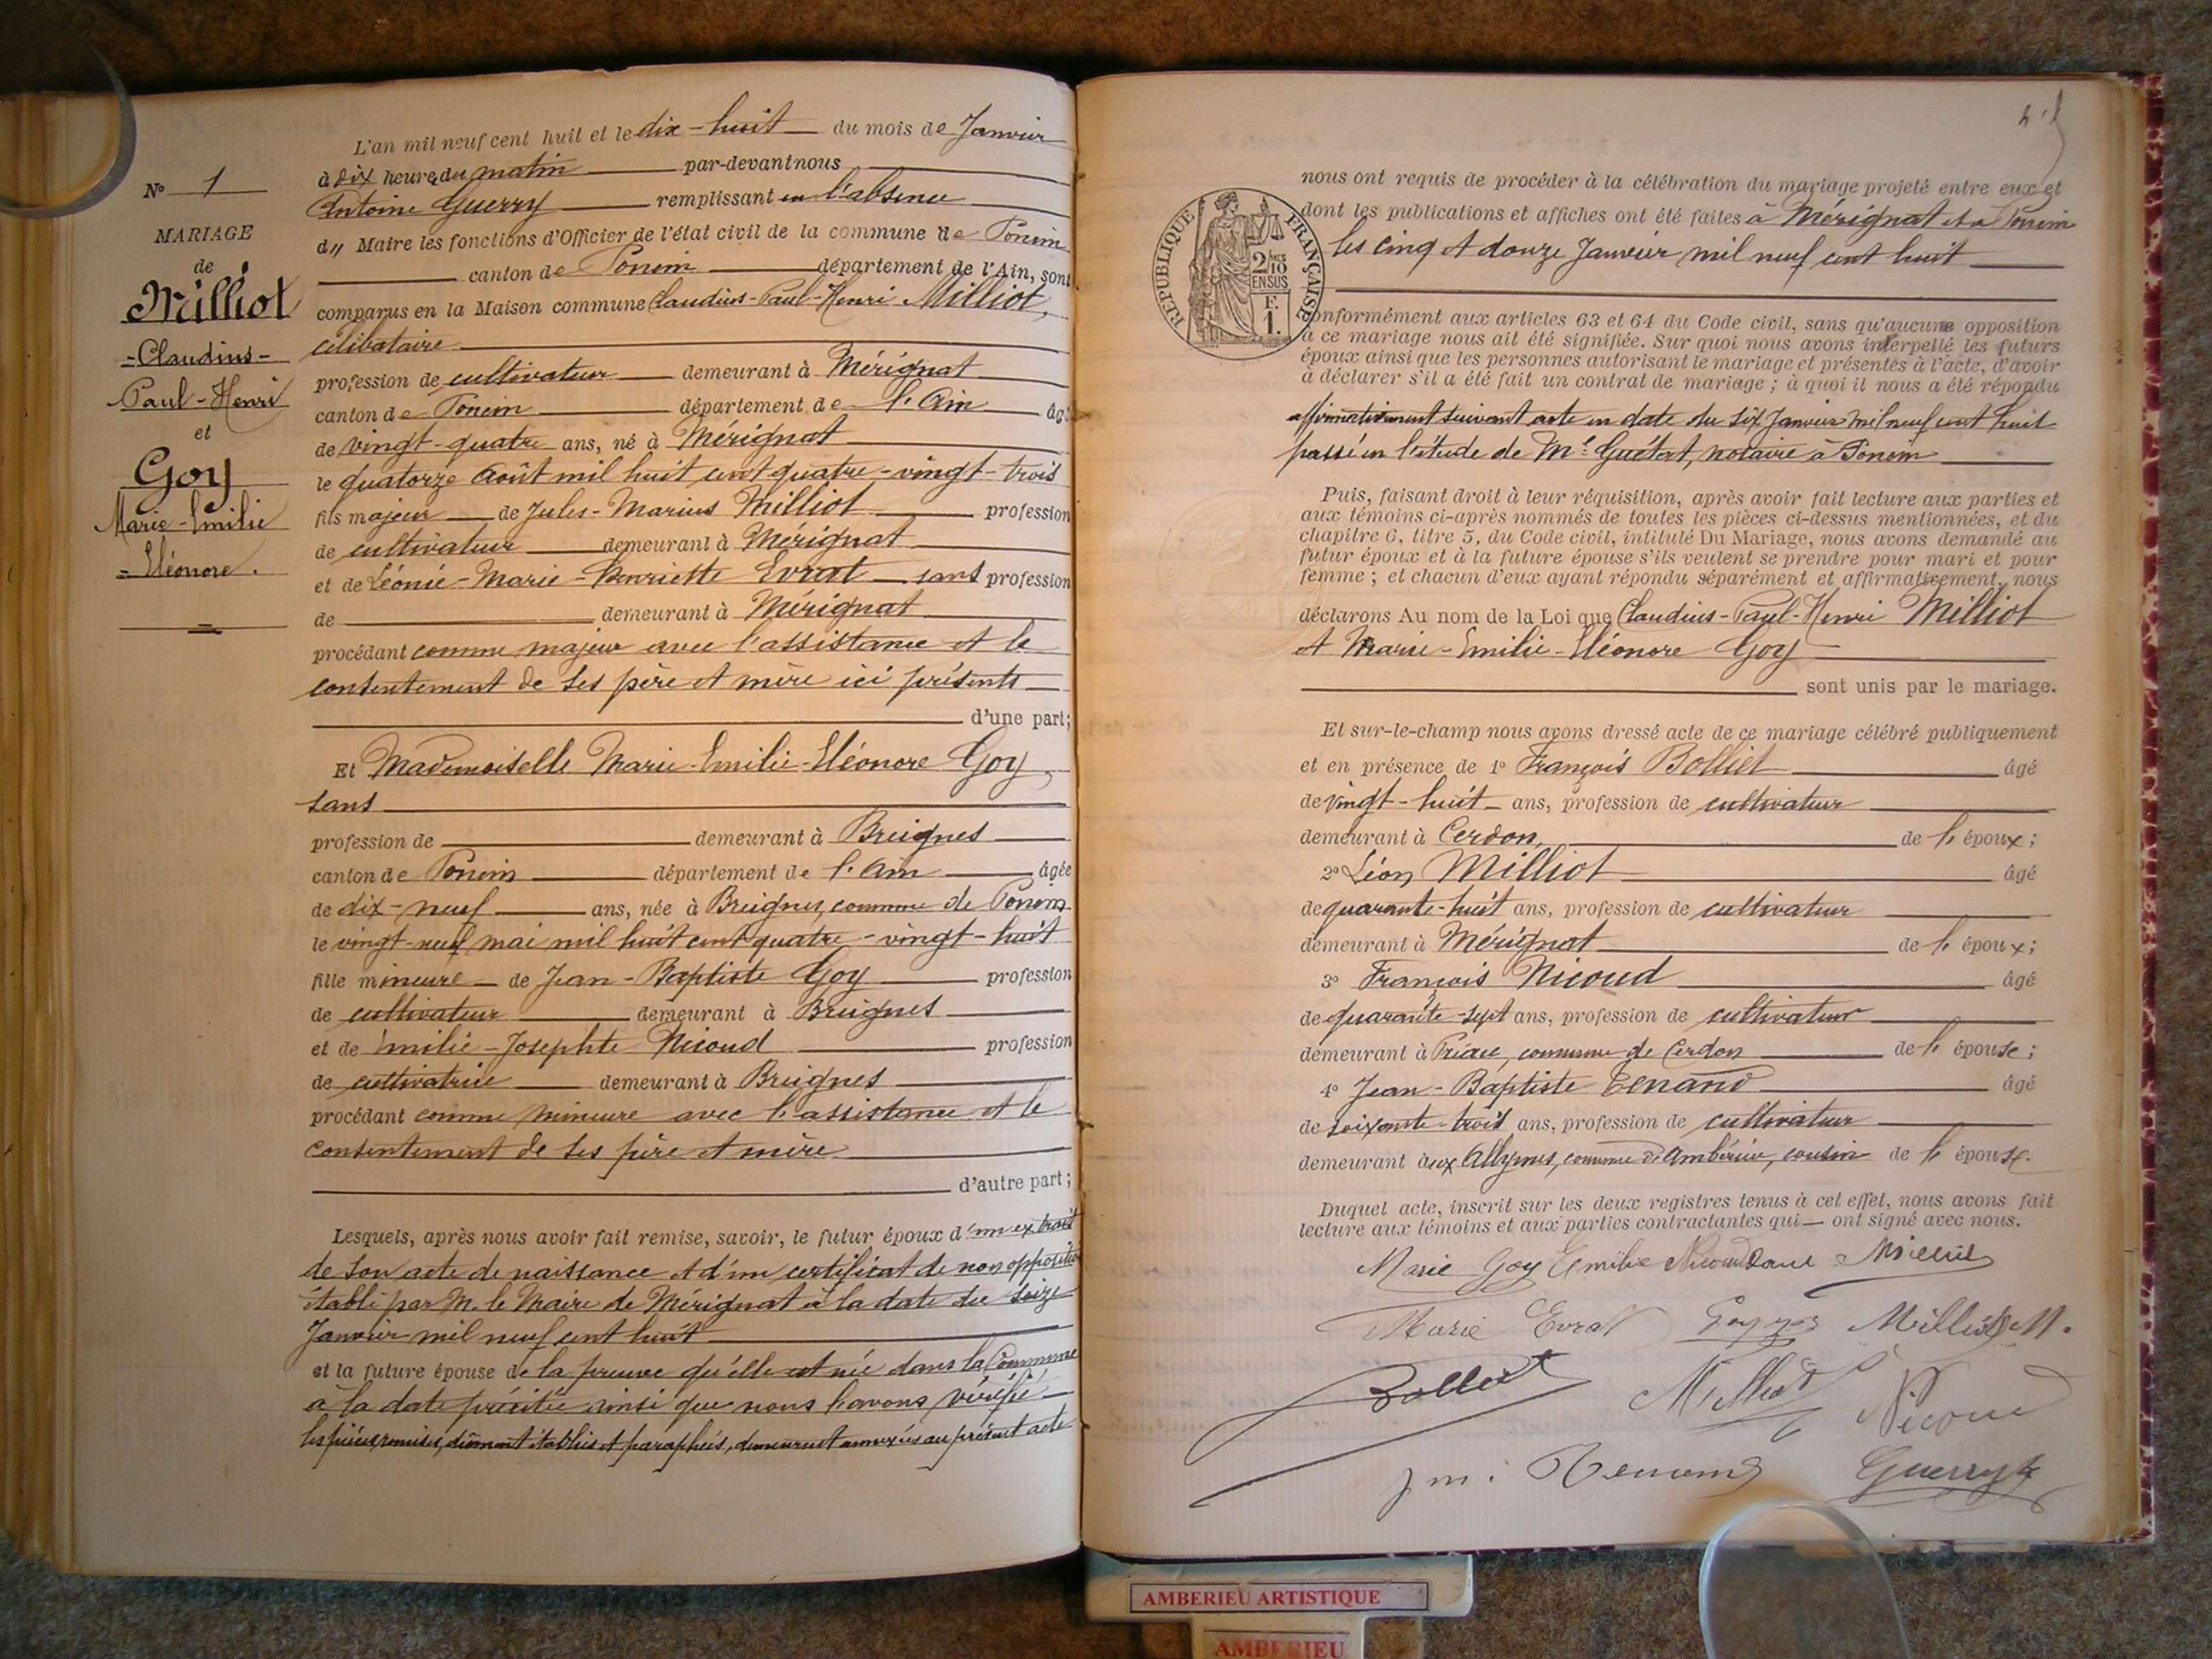 L'an mil neuf cent huit et le dix-huit du mois de Janvier
à dix heures du matin par-devant nous
Antoine Guerry remplissant en l'absence
du Maire les fonctions d'Officier de l'état civil de la commune de Poncin
canton de Poncin département de l'Ain, sont
comparus en la Maison commune Claudius-Paul-Henri Milliot,
célibataire
profession de cultivateur demeurant à Mérignat
canton de Poncin département de l'Ain âgé
de vingt-quatre ans, né à Mérignat
le quatorze Août mil huit cent quatre-vingt-trois
fils majeur de Jules-Marius Milliot profession
de cultivateur demeurant à Mérignat
et de Léonie-Marie-Henriette Evrat sans profession
de demeurant à Mérignat
procédant comme majeur avec l'assistance et le
consentement de ses père et mère ici présents
d'une part;
Et Mademoiselle Marie-Emilie-Eléonore Goy,
sans
profession de demeurant à Breignes
canton de Poncin département de l'Ain âgée
de dix-neuf ans, née à Breignes, commune de Poncin
le vingt-neuf mai mil huit cent quatre-vingt-huit
fille mineure de Jean-Baptiste Goy profession
de cultivateur demeurant à Breignes
et de Emilie-Josephte Nicoud profession
de cultivatrice demeurant à Breignes
procédant comme mineure avec l'assistance et le
consentement de ses père et mère
d'autre part;
Lesquels, après nous avoir fait remise, savoir, le futur époux d'un extrait
de son acte de naissance et d'un certificat de non opposition
établi par M. le Maire de Mérignat à la date du seize
Janvier mil neuf cent huit
et la future épouse de la preuve qu'elle est née dans la Commune
à la date précitée ainsi que nous l'avons vérifié
les pièces remises, dûment établies et paraphées, demeurent annexées au présent acte
No 1
MARIAGE
de
Milliot
-Claudius-
Paul-Henri
et
Goy
Marie-Emilie
=Eléonore.
nous ont requis de procéder à la célébration du mariage projeté entre eux et
dont les publications et affiches ont été faites à Mérignat et à Poncin
les cinq et douze Janvier mil neuf cent huit
RÉPUBLIQUE FRANÇAISE
2/10
EN SUS
F.
1.
Conformément aux articles 63 et 64 du Code civil, sans qu'aucune opposition
à ce mariage nous ait été signifiée. Sur quoi nous avons interpellé les futurs
époux ainsi que les personnes autorisant le mariage et présentés à l'acte, d'avoir
à déclarer s'il a été fait un contrat de mariage ; à quoi il nous a été répondu
affirmativement suivant acte en date du six Janvier mil neuf cent huit
passé en l'étude de Me Guétat, notaire à Poncin
Puis, faisant droit à leur réquisition, après avoir fait lecture aux parties et
aux témoins ci-après nommés de toutes les pièces ci-dessus mentionnées, et du
chapitre 6, titre 5, du Code civil, intitulé Du Mariage, nous avons demandé au
futur époux et à la future épouse s'ils veulent se prendre pour mari et pour
femme ; et chacun d'eux ayant répondu séparément et affirmativement, nous
déclarons Au nom de la Loi que Claudius-Paul-Henri Milliot
et Marie-Emilie-Eléonore Goy
sont unis par le mariage.
Et sur-le-champ nous avons dressé acte de ce mariage célébré publiquement
et en présence de 1o François Bolliet âgé
de vingt-huit ans, profession de cultivateur
demeurant à Cerdon, de l'époux;
2o Léon Milliot âgé
de quarante-huit ans, profession de cultivateur
demeurant à Mérignat de l'époux;
3o François Nicoud âgé
de quarante-sept ans, profession de cultivateur
demeurant à Préau, commune de Cerdon de l'épouse;
4o Jean-Baptiste âgé
de soixante-trois ans, profession de cultivateur
demeurant aux Allymes, commune d'Ambérieu, cousin de l'épouse.
Duquel acte, inscrit sur les deux registres tenus à cet effet, nous avons fait
lecture aux témoins et aux parties contractantes qui ont signé avec nous.
Marie Goy Emilie Nicoud Paul Milliot
Marie Evrat Goy Milliot M.
Bolliet Milliot Nicoud
J m. Guerry
AMBERIEU ARTISTIQUE
AMBERIEU